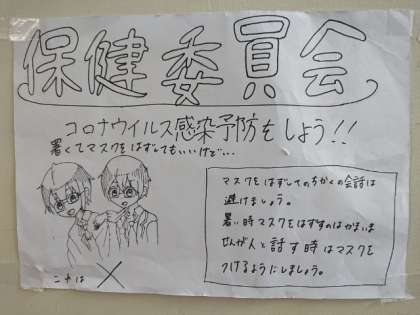 保健委員会
コロナウイルス感染予防をしよう!!
暑くてマスクをはずしてもいいけど…
マスクをはずしてのちかくの会話は
避けましょう。
暑い時マスクをはずすのはかまいま
せんが人と話す時はマスクを
つけるようにしましょう。
これは ×